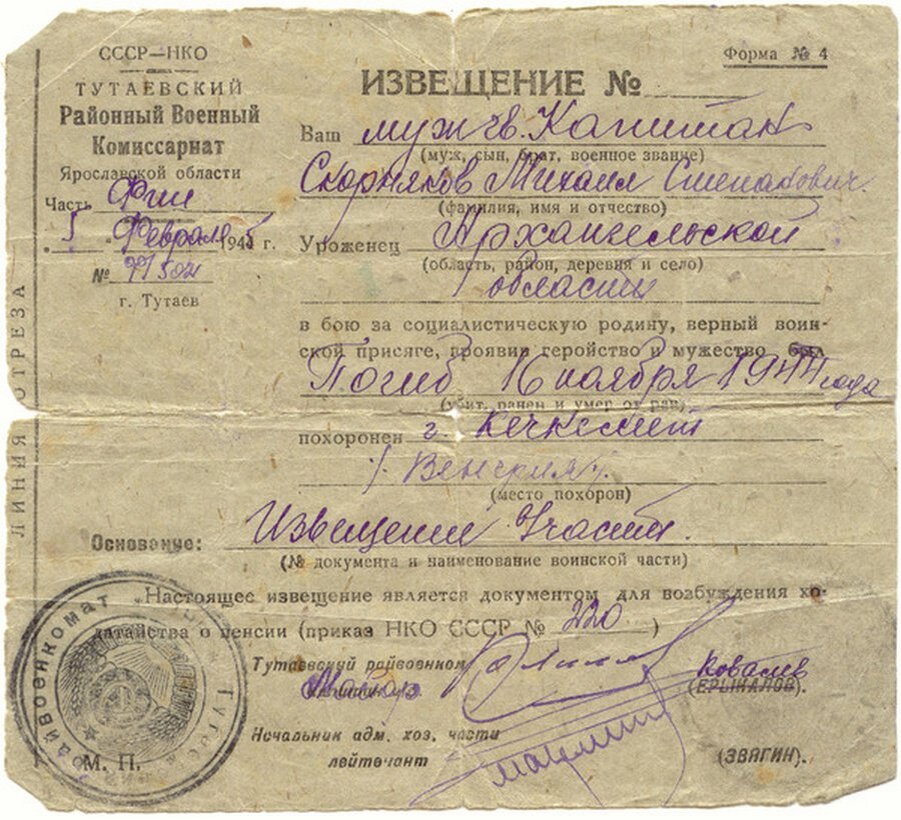 СССР—НКО
ТУТАЕВСКИЙ
Районный Военный
Комиссарнат
Ярославской области
Часть Фин
5 Февраля 1945 г.
№
г. Тутаев
ЛИНИЯ ОТРЕЗА
Форма № 4
ИЗВЕЩЕНИЕ №
Ваш муж гв. Капитан
(муж, сын, брат, военное звание)
Скорняков Михаил Степанович
(фамилия, имя и отчество)
Уроженец Архангельской
(область, район, деревня и село)
области
в бою за социалистическую родину, верный воин-
ской присяге, проявив геройство и мужество был
Погиб 16 ноября 1944 года
(убит, ранен и умер от ран)
похоронен г. Кечкемет
/Венгрия/.
(место похорон)
Основание: Извещение части.
(№ документа и наименование воинской части)
Настоящее извещение является документом для возбуждения хо-
датайства о пенсии (приказ НКО СССР № 220)
Тутаевский райвоенком
Майор
Ковалев
(ЕРЫКАЛОВ).
Начальник адм. хоз. части
лейтенант
(ЗВЯГИН).
М. П.
РАЙВОЕНКОМАТ